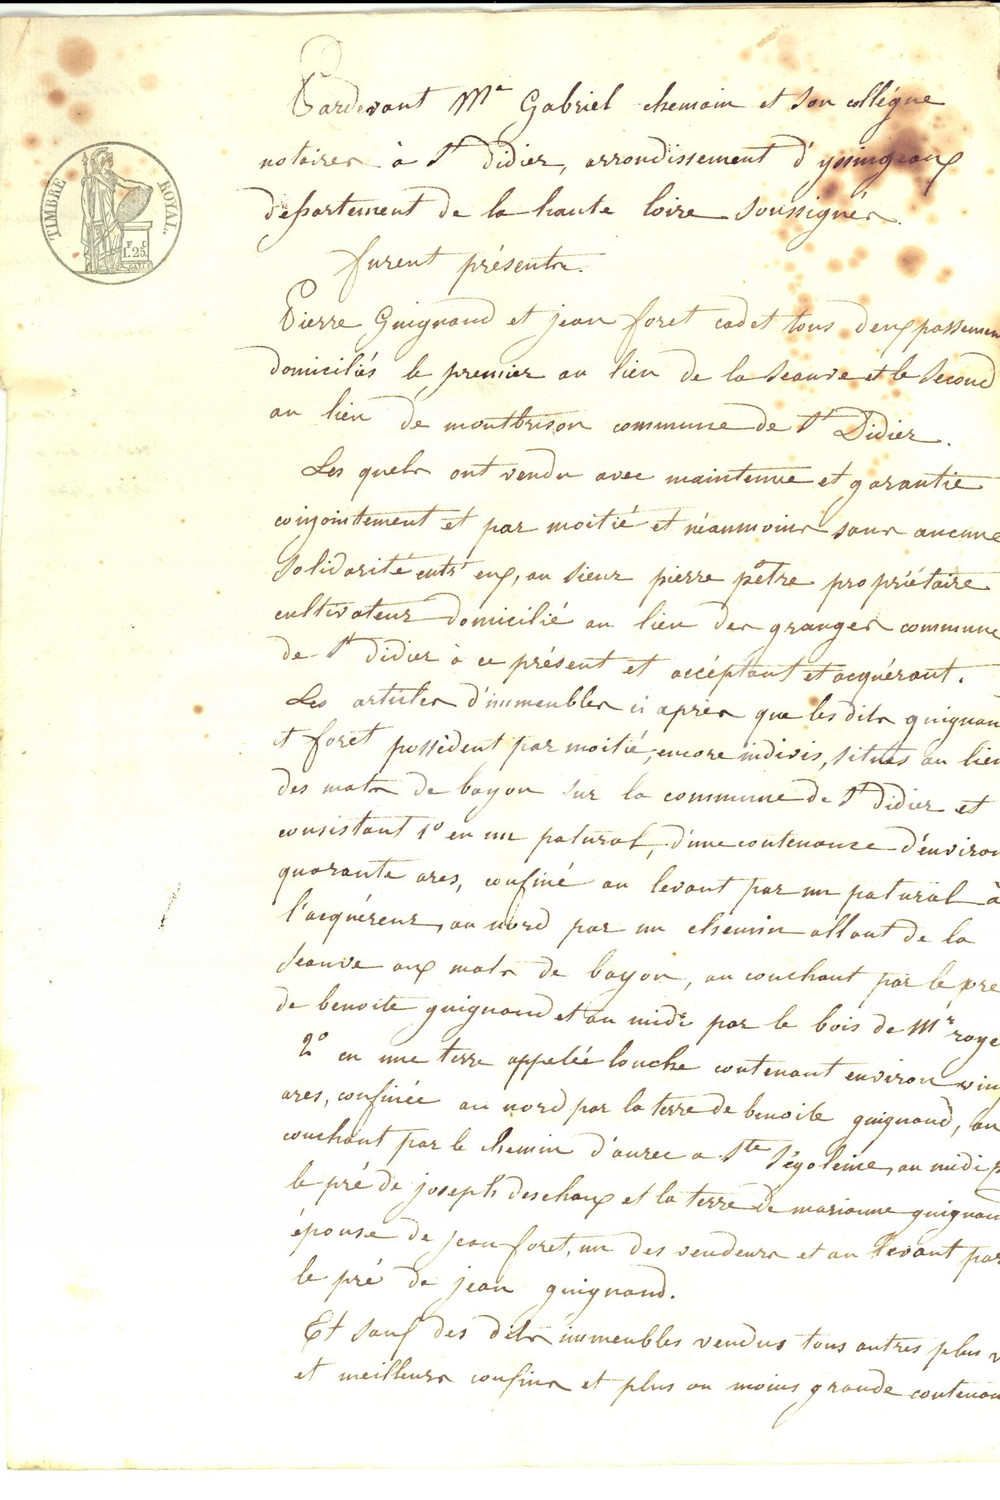 TIMBRE ROYAL
F. C.
1. 25
Pardevant Me Gabriel chemain et son collégue
notaires à St Didier, arrondissement d'yssingeaux
département de la haute loire soussignés.
furent présents.
Pierre Guignand et jean foret cadet tous deux passemen
domiciliés le premier au lieu de la seauve et le second
au lieu de montbrison commune de St Didier.
Les quels ont vendu avec maintenue et garantie
conjointement et par moitié et néanmoins sans aucune
solidarité entr'eux, au sieur pierre pêtre propriétaire
cultivateur domicilié au lieu des granges commune
de St didier à ce présent et accéptant et acquérant.
Les articles d'immeubles ci après que les dits guignan
et foret possèdent par moitié, encore indivis, situés au lieu
des mats de bayon sur la commune de St didier et
consistant 1o en un patural, d'une contenance d'environ
quarante ares, confiné au levant par un patural à
l'acquéreur, au nord par un chemin allant de la
seauve aux mats de bayon, au couchant par le pré
de benoite guignand et au midi par le bois de Mr roye
2o en une terre appelée louche contenant environ vin
ares, confinée au nord par la terre de benoite guignand, au
couchant par le chemin d'aurec a Ste Ségoleine, au midi p
le pré de joseph deschaux et la terre de marianne guignan
épouse de jean foret, un des vendeurs et au levant par
le pré de jean guignand.
Et sauf des dits immeubles vendus tous autres plus v
et meilleurs confins et plus ou moins grande contenan